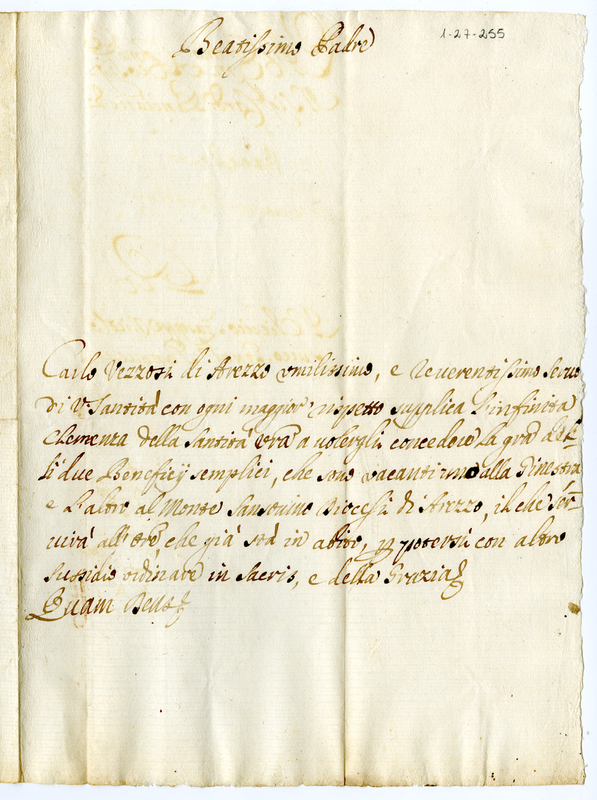 1-27-255
Beatissimo Padre
Carlo Vezzosi di Arezzo umilissimo, e Reverentissimo servo
di V. Santità con ogni maggior rispetto supplica l'infinita
clemenza della Santità vra a volergli concedere la gra
li due Beneficij semplici, che sono vacanti uno alla Ginestra
e l'altro al Monte Sansovino Diocesi di Arezzo, il che ser-
virà all' Ore, che già stà in abito, p potersi con altro
sussidio ordinare in Sacris, e della Grazia
Quam Deus